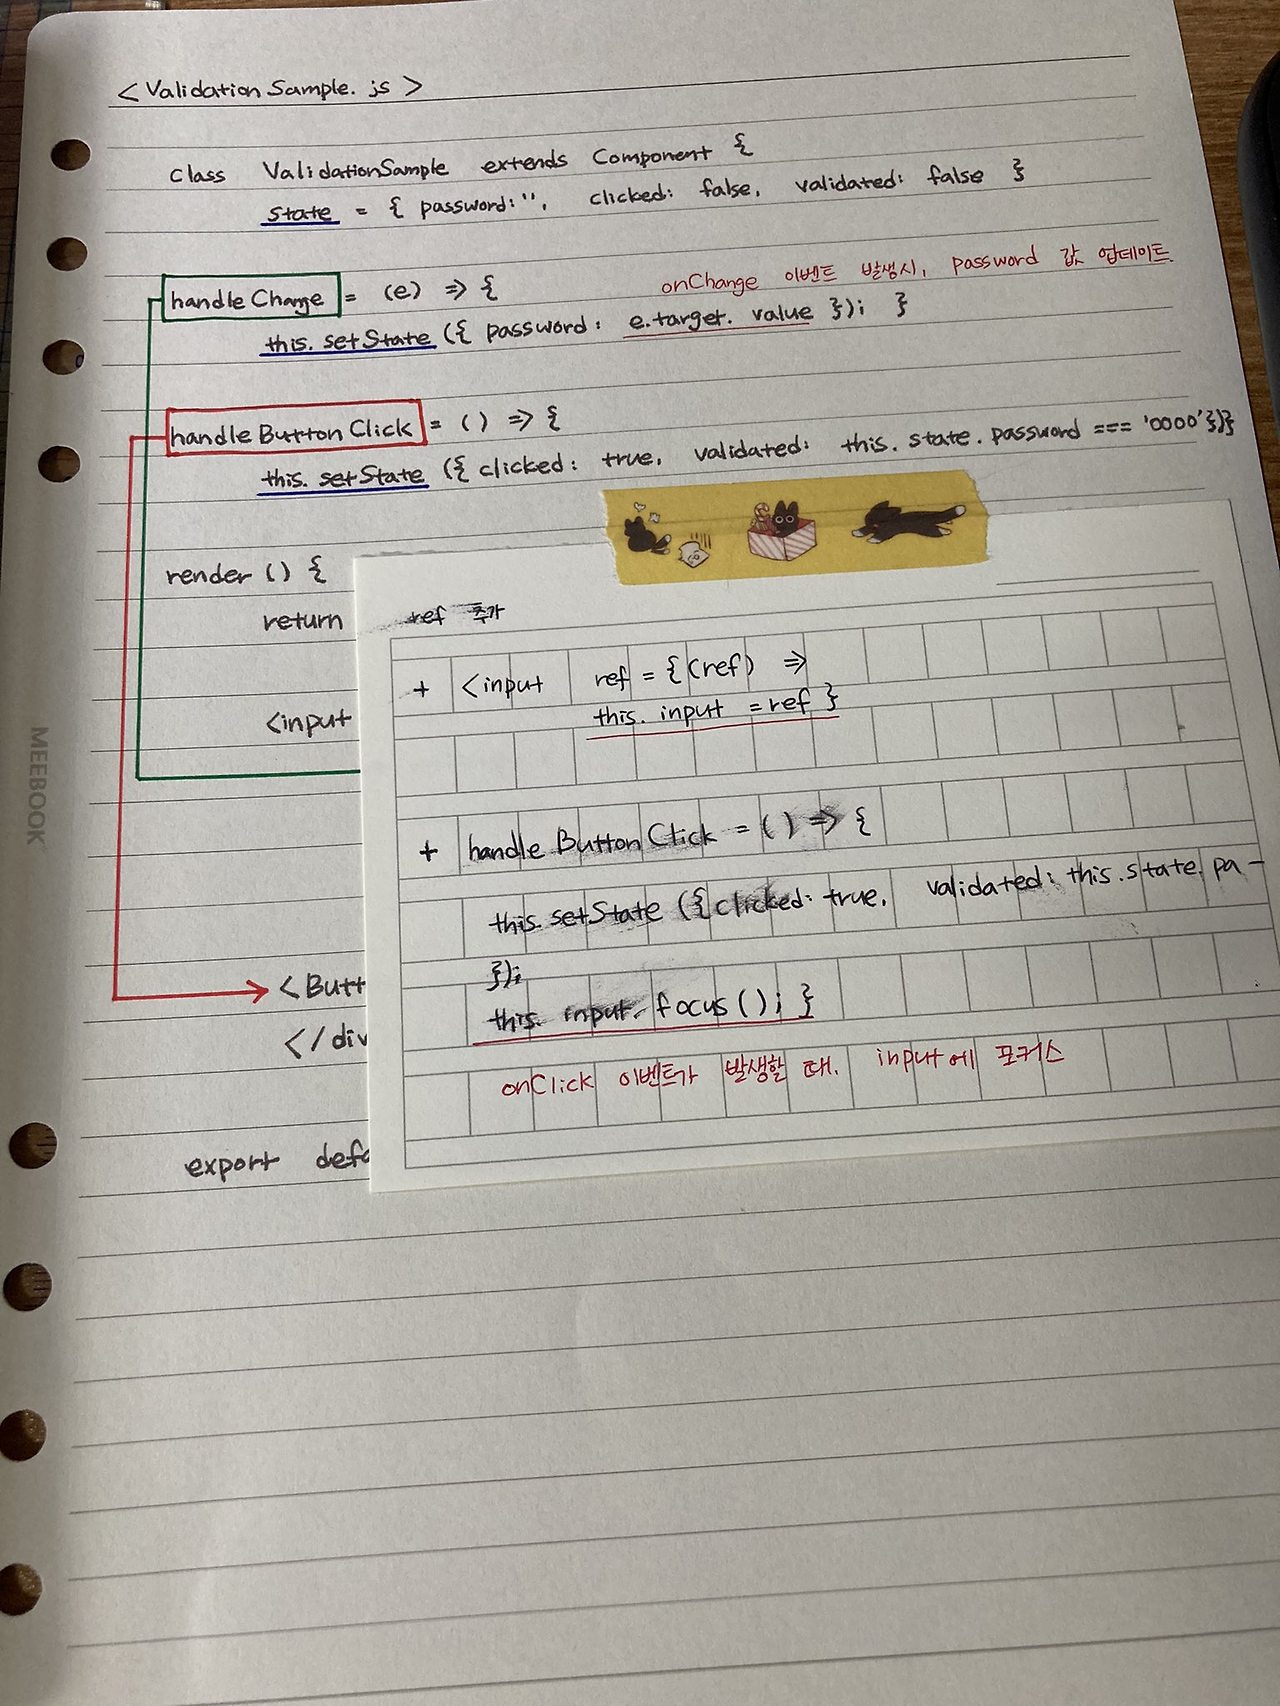 < ValidationSample.js >
class ValidationSample extends Component {
state = { password:'', clicked: false, validated: false }
handleChange = (e) => {
onChange 이벤트 발생시, password 값 업데이트.
this.setState ({ password: e.target.value }); }
handleButtonClick = () => {
this.setState ({ clicked: true, validated: this.state.password === '0000'})}
render () {
return
<input
<Butt
</div
export defa
ref 추가
+ <input ref = {(ref) =>
this.input = ref }
+ handleButtonClick = () => {
this.setState ({clicked: true, validated: this.state.pa-
});
this.input.focus(); }
onClick 이벤트가 발생할 때, input에 포커스
MEEBOOK